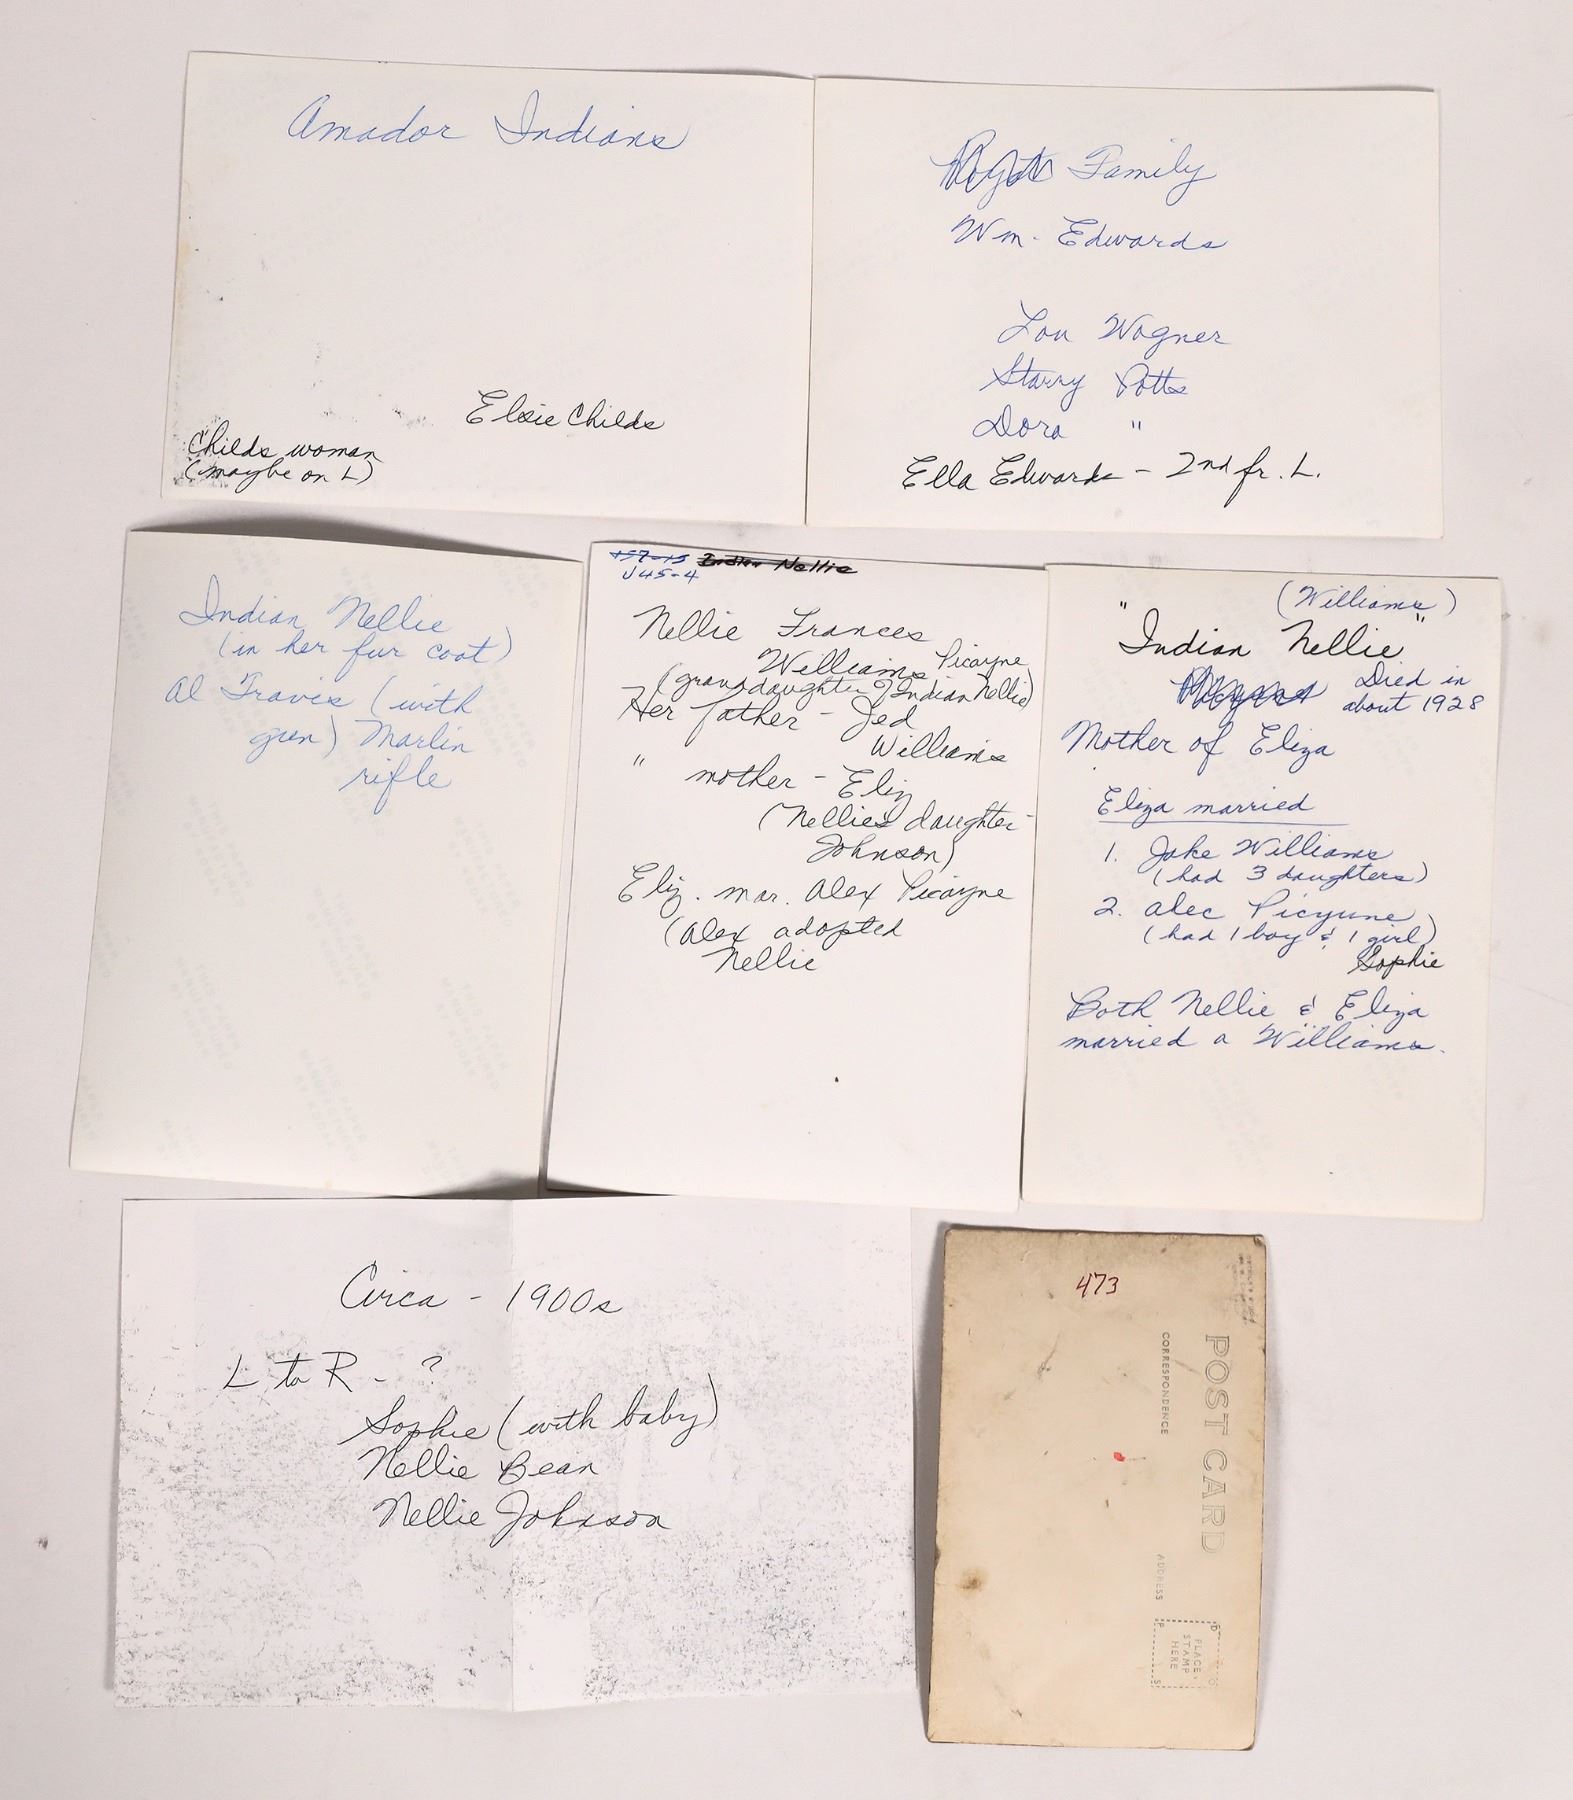 Amador Indians
Elsie Childs
Childs woman
(maybe on L)
Family
Wm. Edwards
Lou Wagner
Starry Potts
Dora "
Ella Edwards - 2nd fr. L.
Indian Nellie
(in her fur coat)
Al Travis (with
gun) Marlin
rifle
157-15 Indian Nellie
J45-4
Nellie Frances
Williams Picayne
(granddaughter of Indian Nellie)
Her father - Jed
Williams
" mother - Eliz
(Nellie's daughter-
Johnson)
Eliz. mar. Alex Picayne
(Alex adopted
Nellie
(Williams)
"Indian Nellie"
Died in
about 1928
Mother of Eliza
Eliza married
1. Jake Williams
(had 3 daughters)
2. Alec Picyune
(had 1 boy & 1 girl)
Sophie
Both Nellie & Eliza
married a Williams.
Circa - 1900s
L to R - ?
Sophie (with baby)
Nellie Bean
Nellie Johnson
473
POST CARD
CORRESPONDENCE
ADDRESS
PLACE
STAMP
HERE